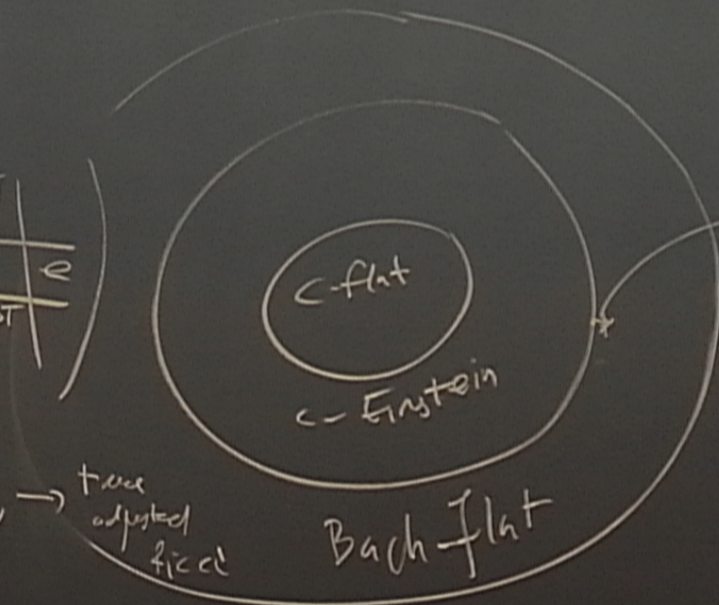 c-flat
e
T
c-Einstein
→ trace
adjusted
Ricci
Bach-flat